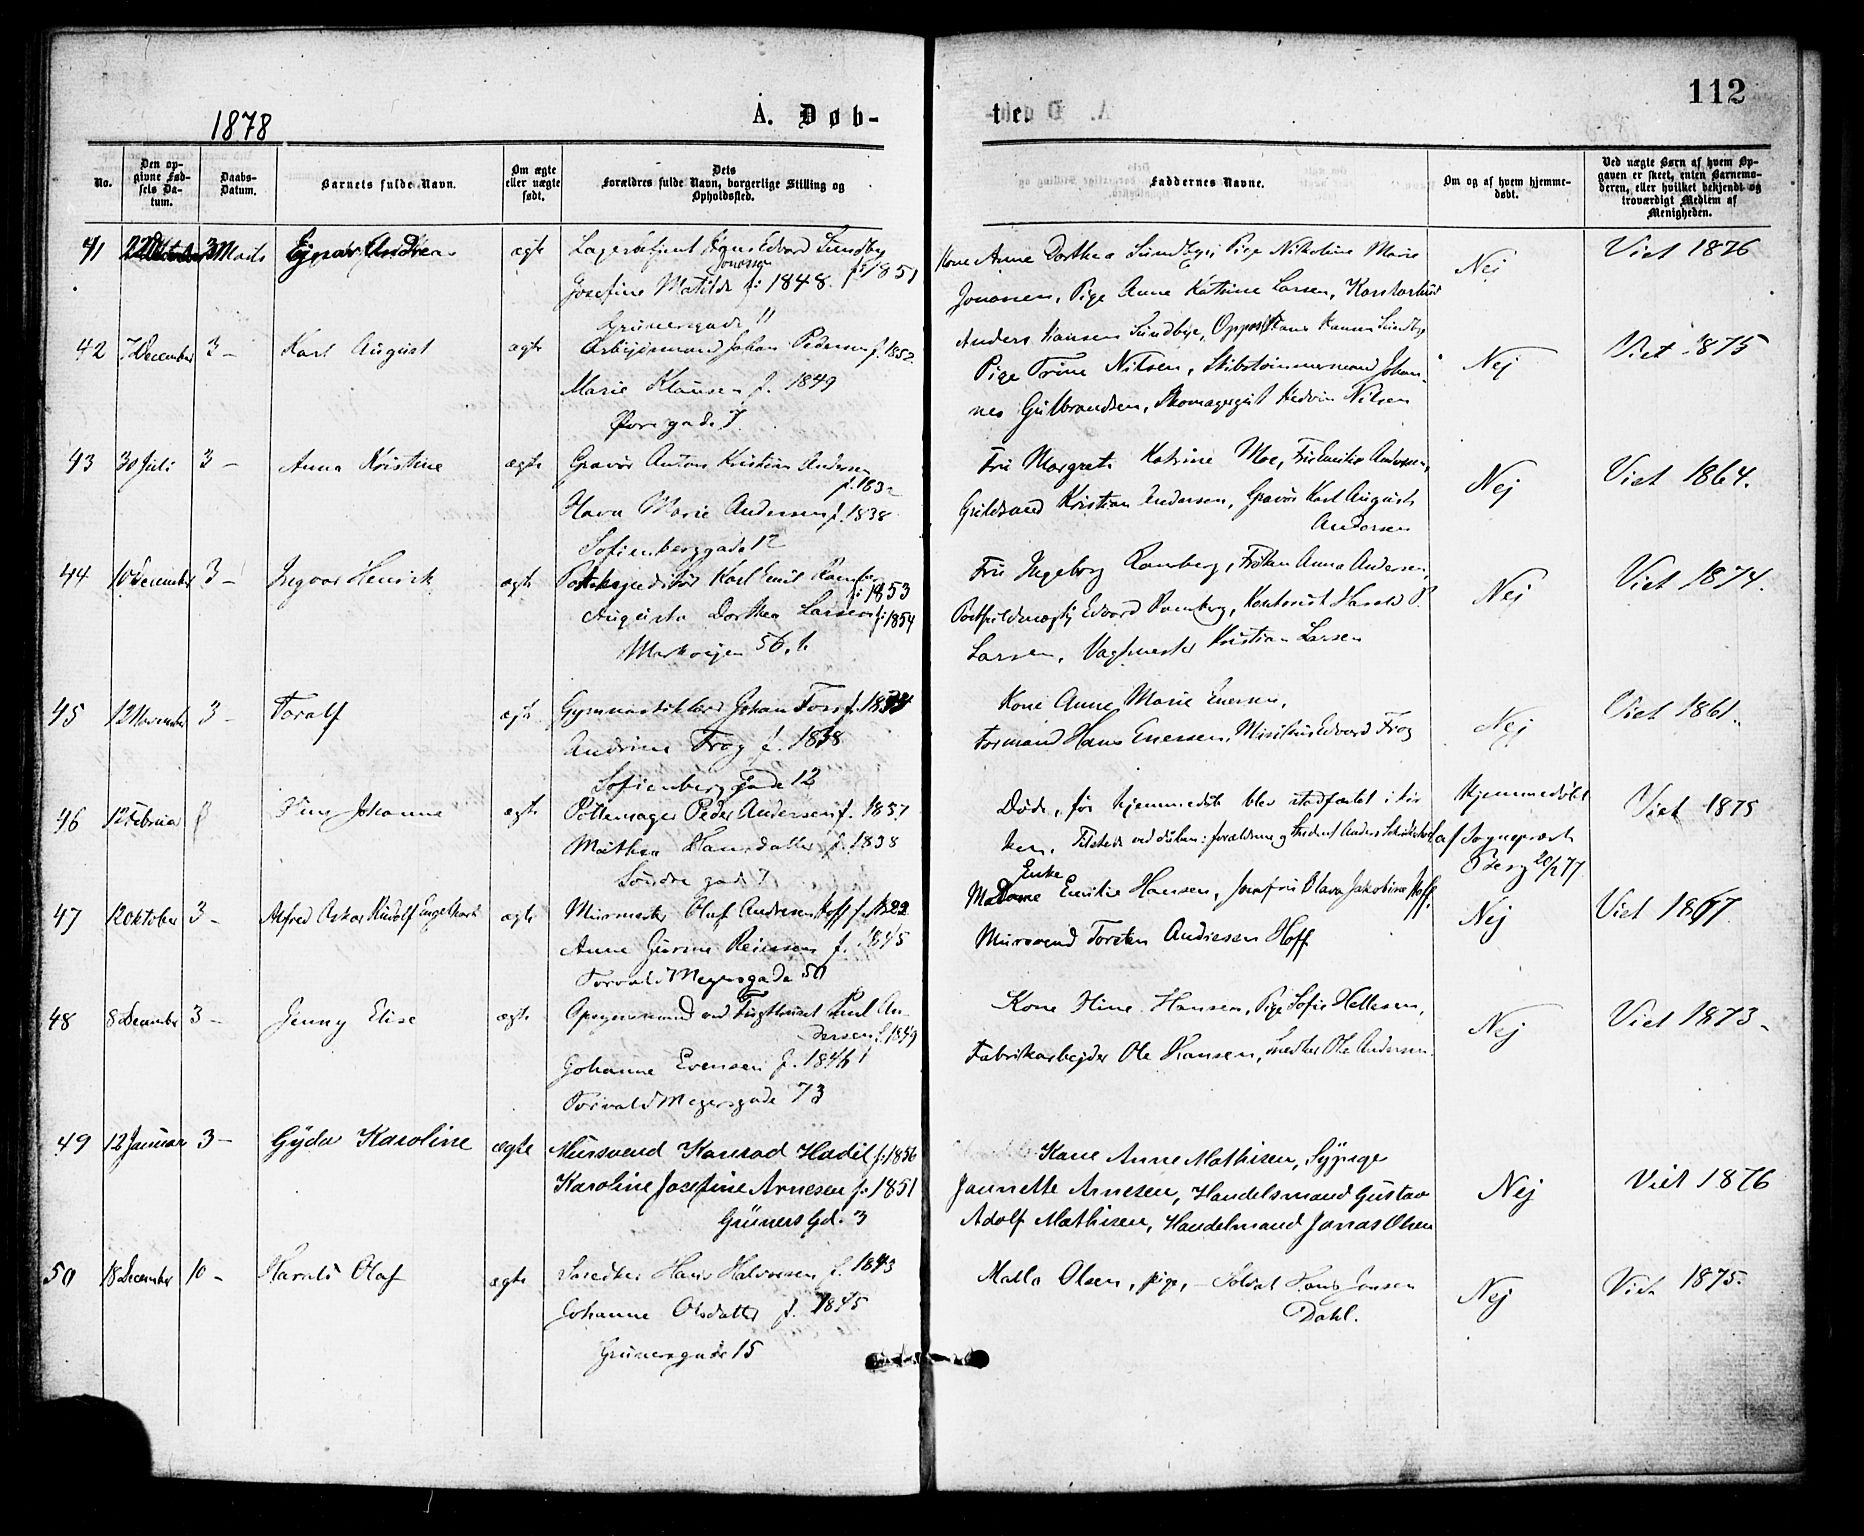 1878
A. Døb-
No.
Den op-
givne Fød-
sels Da-
tum.
Daabs-
Datum.
Barnets fulde Navn.
Om ægte
eller uægte
født.
Dets
Forældres fulde Navn, borgerlige Stilling og
Opholdssted.
41 22 Oktober 3 Marts Ejnar Andreas ægte Edvard Sundby
Jonassen f. 1851
Josefine Matilde f. 1848.
Grünersgade 11
42 7 December 3 – Karl August ægte Arbejdsmand Johan Pedersen f. 1852.
Marie Klausen f. 1849
Øvregade 7
43 30 Juli 3 – Anna Kristine ægte Gravør Anton Kristian Andersen
f. 1832
Marie Andersen f. 1838
Sofienberggade 12
44 10 December 3 – Ingvar Henrik ægte Postekspeditør Karl Emil Ramberg
f. 1853
Augusta Dorthea Larsen f. 1854
Markvejen 56, b
45 12 November 3 – Toralf ægte Gymnastiklærer Johan Foss f. 1834
Andrine Frog f. 1838
Sofienberggade 12
46 12 Februar Johanne ægte Pottemager Peder Andersen f. 1851
Mathea Hansdatter f. 1838
Søndregade 7
47 12 Oktober 3 – Alfred Oskar Rudolf Engelhart ægte Murmester Olaf Andresen Hoff f. 1822
Anne Gurine Reiersen f. 1845
Torvald Meyersgade 50
48 8 December 3 – Jenny Elise ægte Opsynsmand ved Tugthuset Paul An-
dersen f. 1849
Johanne Evensen f. 1846
Torvald Meyersgade 73
49 12 Januar 3 – Gyda Karoline ægte Mursvend Konrad Hadel f. 1856
Karoline Josefine Arnesen f. 1851
Grüners Gd. 3
50 18 December 10 – Harald Olaf ægte Snedker Hans Halvorsen f. 1843
Johanne Olsdatter f. 1845
Grünersgade 15
112
te.
Faddernes Navne.
Om og af hvem hjemme-
døbt.
Ved uægte Børn af hvem Op-
gaven er skeet, enten Barnemo-
deren, eller hvilket bekjendt og
troværdigt Medlem af
Menigheden.
Kone Anne Dorthea Sundbye, Pige Nikoline Marie
Jonassen, Pige Anne Katrine Larsen, Kontorist
Anders Hansen Sundbye, Hans Hansen Sundbye
Nej Viet 1876
Pige Trine Nilsen, Skibstømmermand Johan-
nes Gulbrandsen, Skomagergut Hedvin Nilsen
Nej Viet 1875
Fru Margrete Katrine Moe, Fru Emilie Andersen,
Guldsmed Kristian Andersen, Gravør Karl August
Andersen
Nej Viet 1864.
Fru Ingeborg Ramberg, Frøken Anna Andersen,
Postfuldmægtig Edvard Ramberg, Kontorist Harald P.
Larsen, Vagtmester Kristian Larsen
Nej Viet 1874.
Kone Anne Marie Enersen,
Formand Hans Enersen, Edvard Frog
Nej Viet 1861.
Døde, før Hjemmedåb blev stadfæstet i Kir
ken. Tilstede ved dåben: forældrene og Student Anders
Hjemmedøbt
af Sogneprest
Berg 20/2 77
Viet 1875
Enke
Madame Emilie Hansen, Jomfru Olava Jakobine Hoff,
Mursvend Torsten Andresen Hoff.
Nej Viet 1867
Kone Hansen, Pige Sofie Hellesen,
Fabrikarbejder Ole Hansen, Snedker Ole Andersen.
Nej Viet 1873.
Kone Anne Mathisen, Sypige
Jannette Arnesen, Handelsmand Gustav
Adolf Mathisen, Handelmand Jonas Olsen
Nej Viet 1876
Malla Olsen, pige, – Soldat Hans Jonsen
Dahl.
Nej Viet 1875.